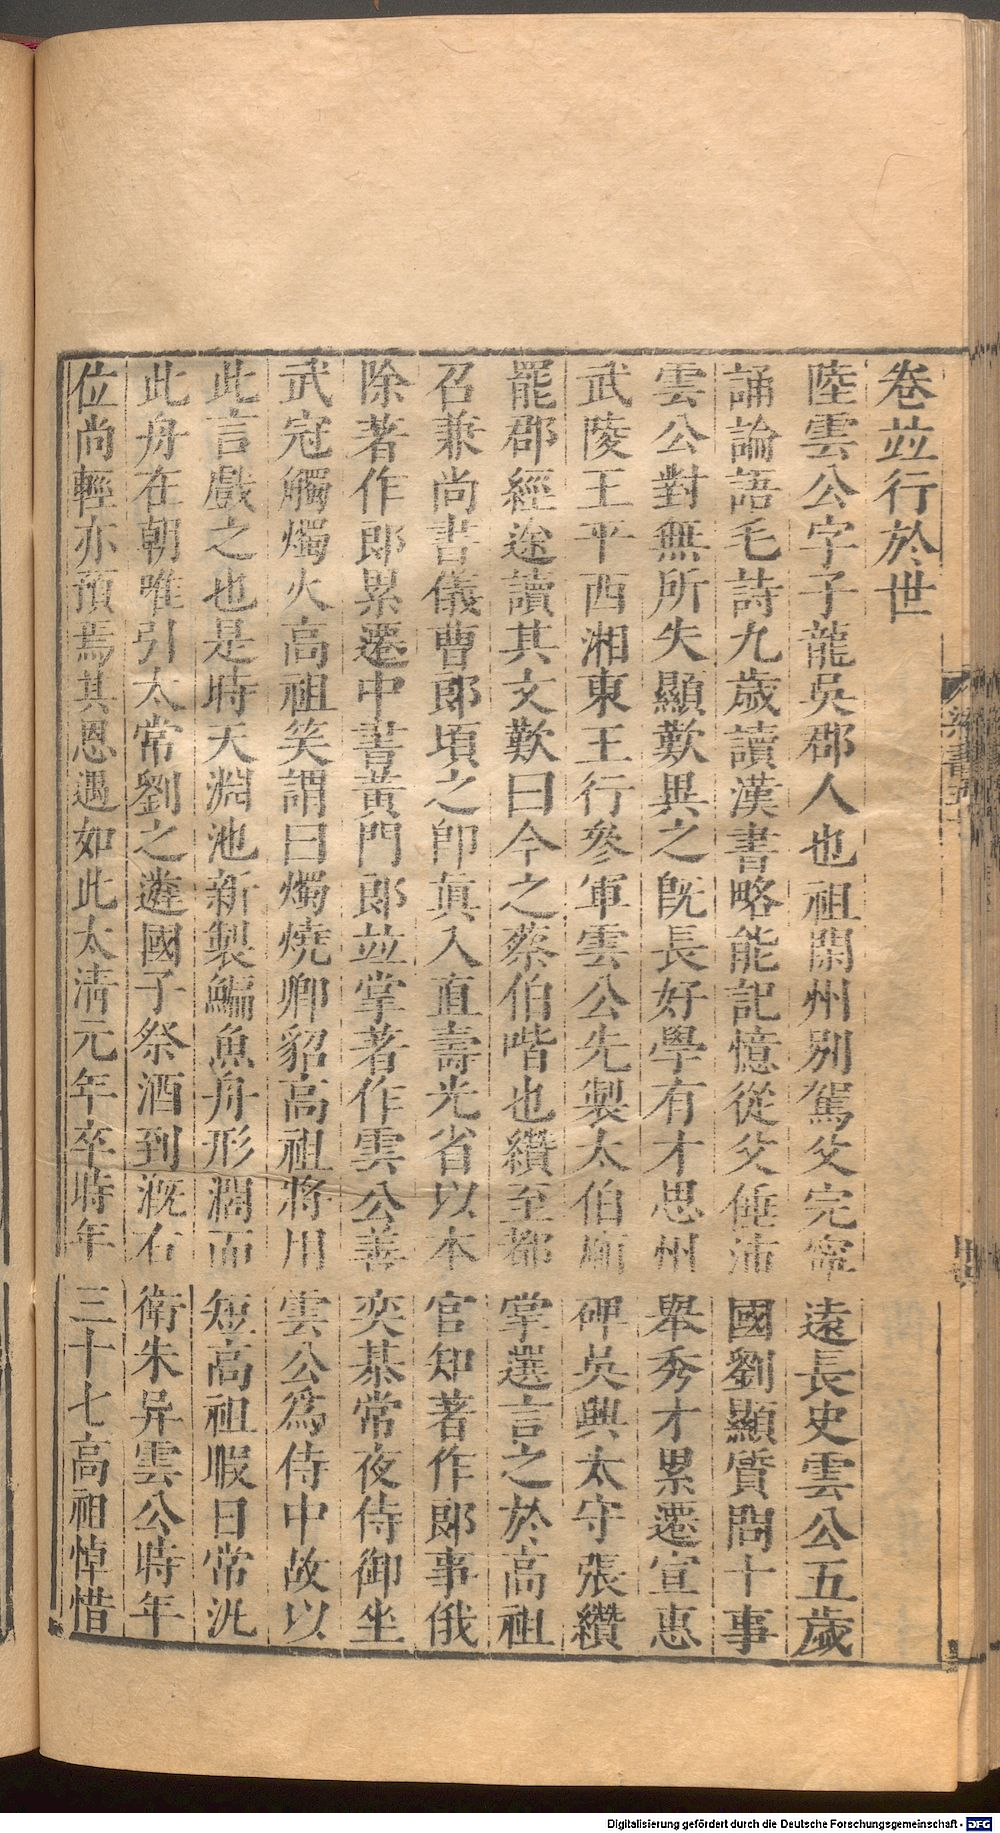 卷並行於世
陸雲公字子龍吳郡人也祖閑州别駕父完寧遠長史雲公五歲
誦論語毛詩九歲讀漢書略能記憶從父倕沛國劉顯質問十事
雲公對無所失顯歎異之旣長好學有才思州舉秀才累遷宣惠
武陵王平西湘東王行參軍雲公先製太伯廟碑吳興太守張纘
罷郡經途讀其文歎曰今之蔡伯喈也纘至都掌選言之於高祖
召兼尚書儀曹郎頃之卽眞入直壽光省以本官知著作郎事俄
除著作郎累遷中書黃門郎並掌著作雲公善奕棊常夜侍御坐
武冠觸燭火高祖笑謂曰燭燒卿貂高祖將用雲公爲侍中故以
此言戲之也是時天淵池新製鯿魚舟形濶而短高祖暇日常汎
此舟在朝唯引太常劉之遴國子祭酒到溉右衛朱异雲公時年
位尚輕亦預焉其恩遇如此太淸元年卒時年三十七高祖悼惜
梁書五十
Digitalisierung gefördert durch die Deutsche Forschungsgemeinschaft - DFG